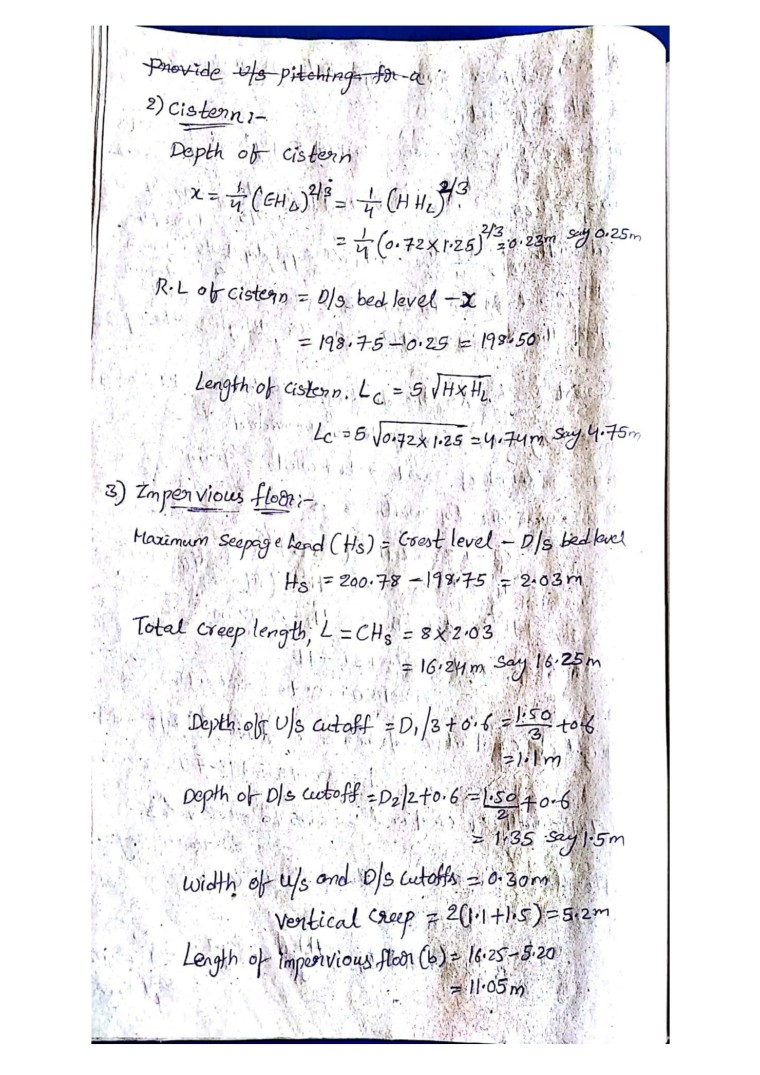 Provide U/s pitching for a
2) Cistern :-
Depth of cistern
x = 1/4 (EHL)^2/3 = 1/4 (H HL)^2/3
= 1/4 (0.72 x 1.25)^2/3 = 0.23m say 0.25m
R.L of cistern = D/s bed level - x
= 198.75 - 0.25 = 198.50
Length of cistern. Lc = 5 √H x HL
Lc = 5 √0.72 x 1.25 = 4.74m say 4.75m
3) Impervious floor :-
Maximum seepage head (Hs) = Crest level - D/s bed level
Hs = 200.78 - 198.75 = 2.03m
Total creep length, L = CHs = 8 x 2.03
= 16.24m say 16.25m
Depth of U/s cutoff = D1/3 + 0.6 = 1.50/3 + 0.6
= 1.1m
Depth of D/s cutoff = D2/2 + 0.6 = 1.50/2 + 0.6
= 1.35 say 1.5m
Width of U/s and D/s cutoffs = 0.30m
Vertical creep = 2(1.1 + 1.5) = 5.2m
Length of impervious floor (b) = 16.25 - 5.20
= 11.05m